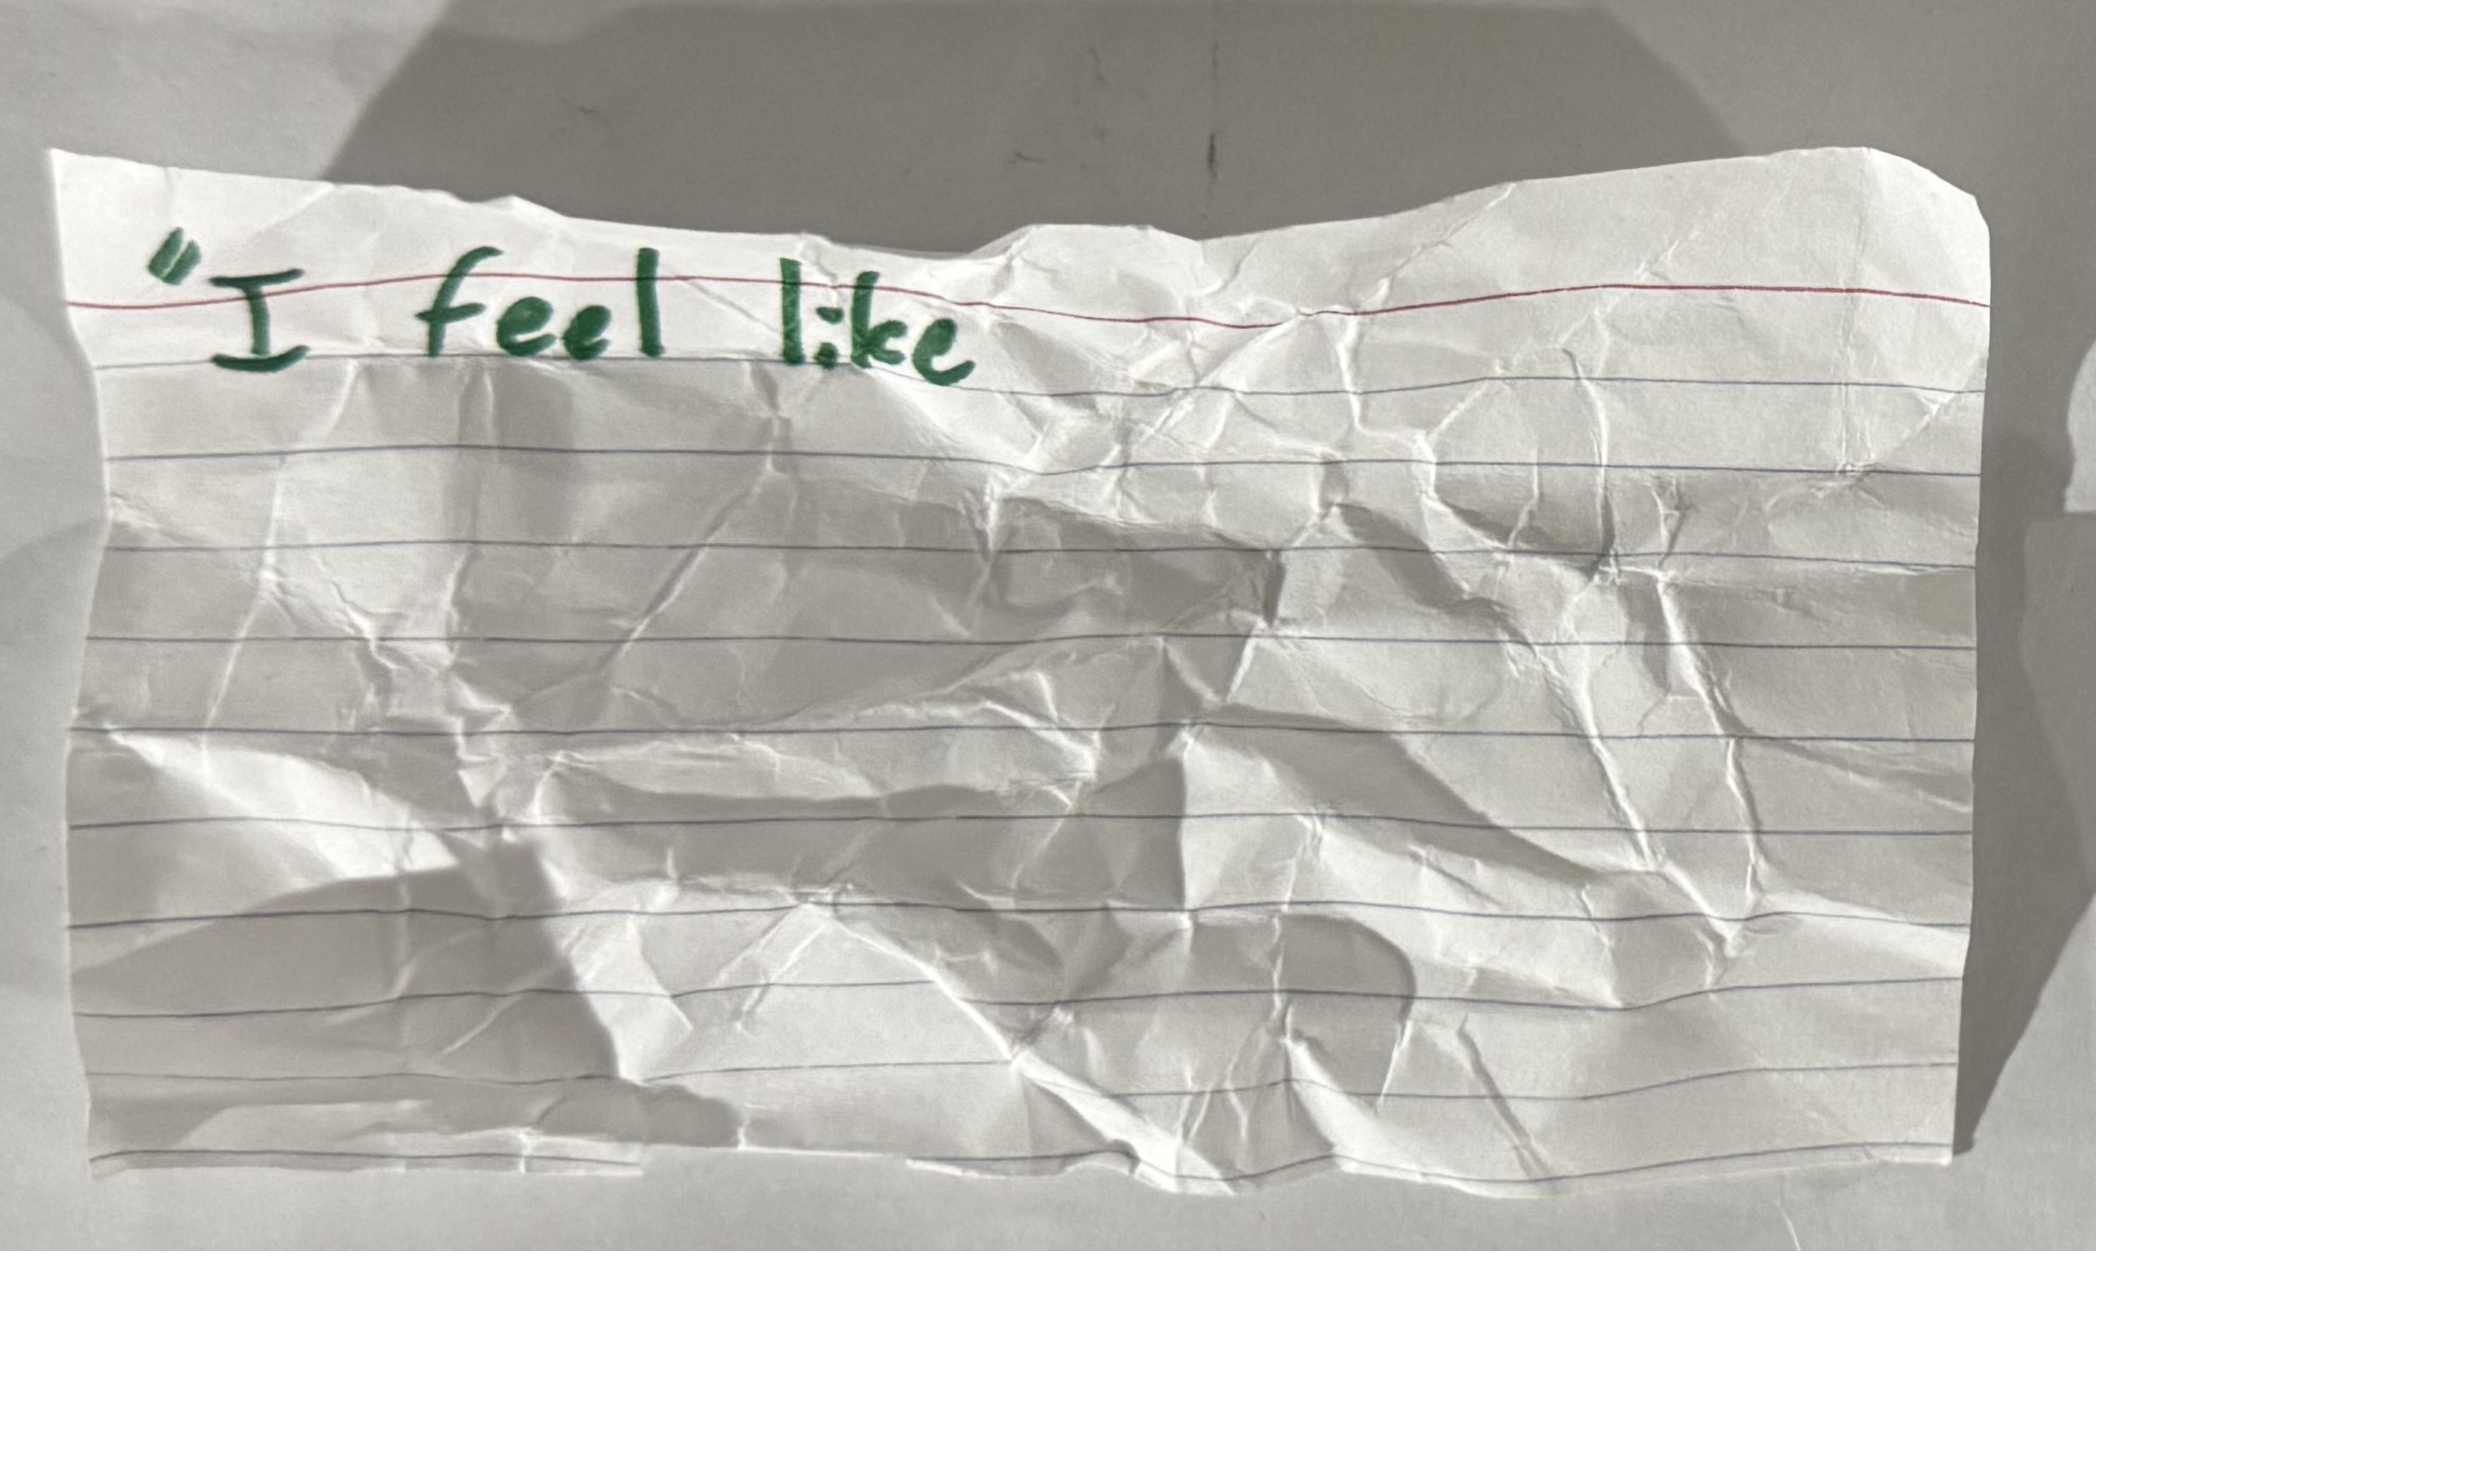 "I feel like